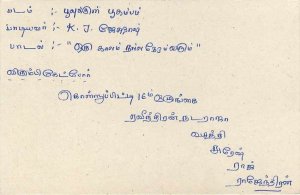 படம் :- பூவுக்குள் பூகம்பம்
பாடியவர் :- K. J. ஜேசுதாஸ்
பாடல் :- "ஒரு காலம் நல்ல நேரம் வரும்"
விரும்பிகேட்போர்
கொள்ளுப்பிட்டி 16ம் ஒழுங்கை
ரவீந்திரன் நடராஜா
வசந்தி
சுரேஷ்
ராஜ்
ராஜேந்திரன்